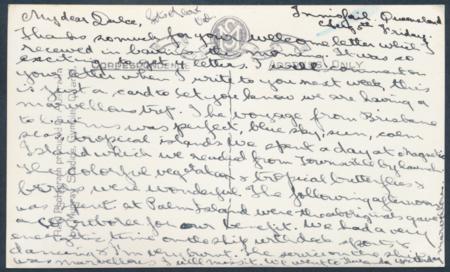 Innisfail. Queensland
Friday.
My dear Dulce,
Thanks so much for your welcome letter which I
received in this morning. It was so
exciting to get letters. I will comment on
your letter when I write to you next week, this
is just a card to let you know we are having a
marvellous trip. The voyage from Brisbane
to was perfect, blue sky, sun, calm
seas & tropical islands. We spent a day at Magnetic
Island which we reached from Townsville by launch
The colorful vegetation & tropical butterflies &
birds were wonderful. The following afternoon
was spent at Palm Island were the aboriginals gave
a corroboree for our benefit. We had a very
energetic time on the ship with deck sports &
dancing & I'm very burnt. The service on the ship
was marvellous & I will miss it.
CORRESPONDENCE
ADDRESS ONLY